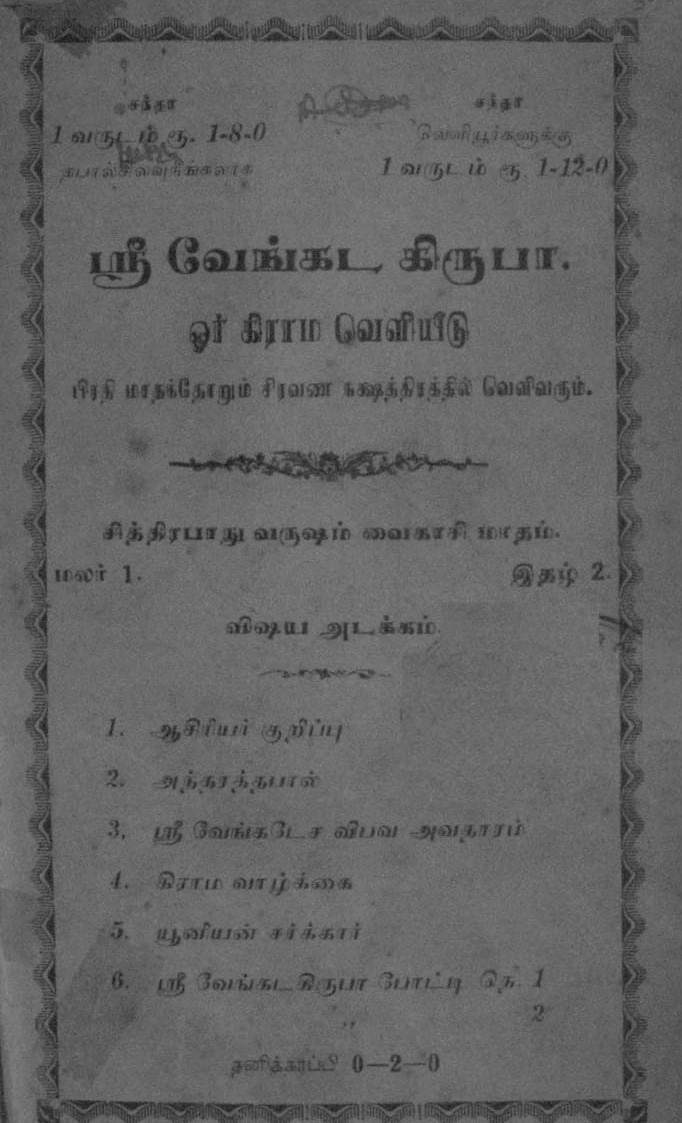 சந்தா
1 வருடம் ரூ. 1-8-0
தபால்சிலவுநீங்கலாக
சந்தா
வெளியூர்களுக்கு
1 வருடம் ரூ 1-12-0
ஸ்ரீ வேங்கட கிருபா.
ஓர் கிராம வெளியீடு
பிரதி மாதந்தோறும் சிரவண நக்ஷத்திரத்தில் வெளிவரும்.
சித்திரபாநு வருஷம் வைகாசி மாதம்.
மலர் 1.
இதழ் 2.
விஷய அடக்கம்.
1. ஆசிரியர் குறிப்பு
2. அந்தரத்தபால்
3, ஸ்ரீ வேங்கடேச விபவ அவதாரம்
4. கிராம வாழ்க்கை
5. யூனியன் சர்க்கார்
6. ஸ்ரீ வேங்கடகிருபா போட்டி நெ. 1
,, 2
தனிக்காப்பி 0—2—0